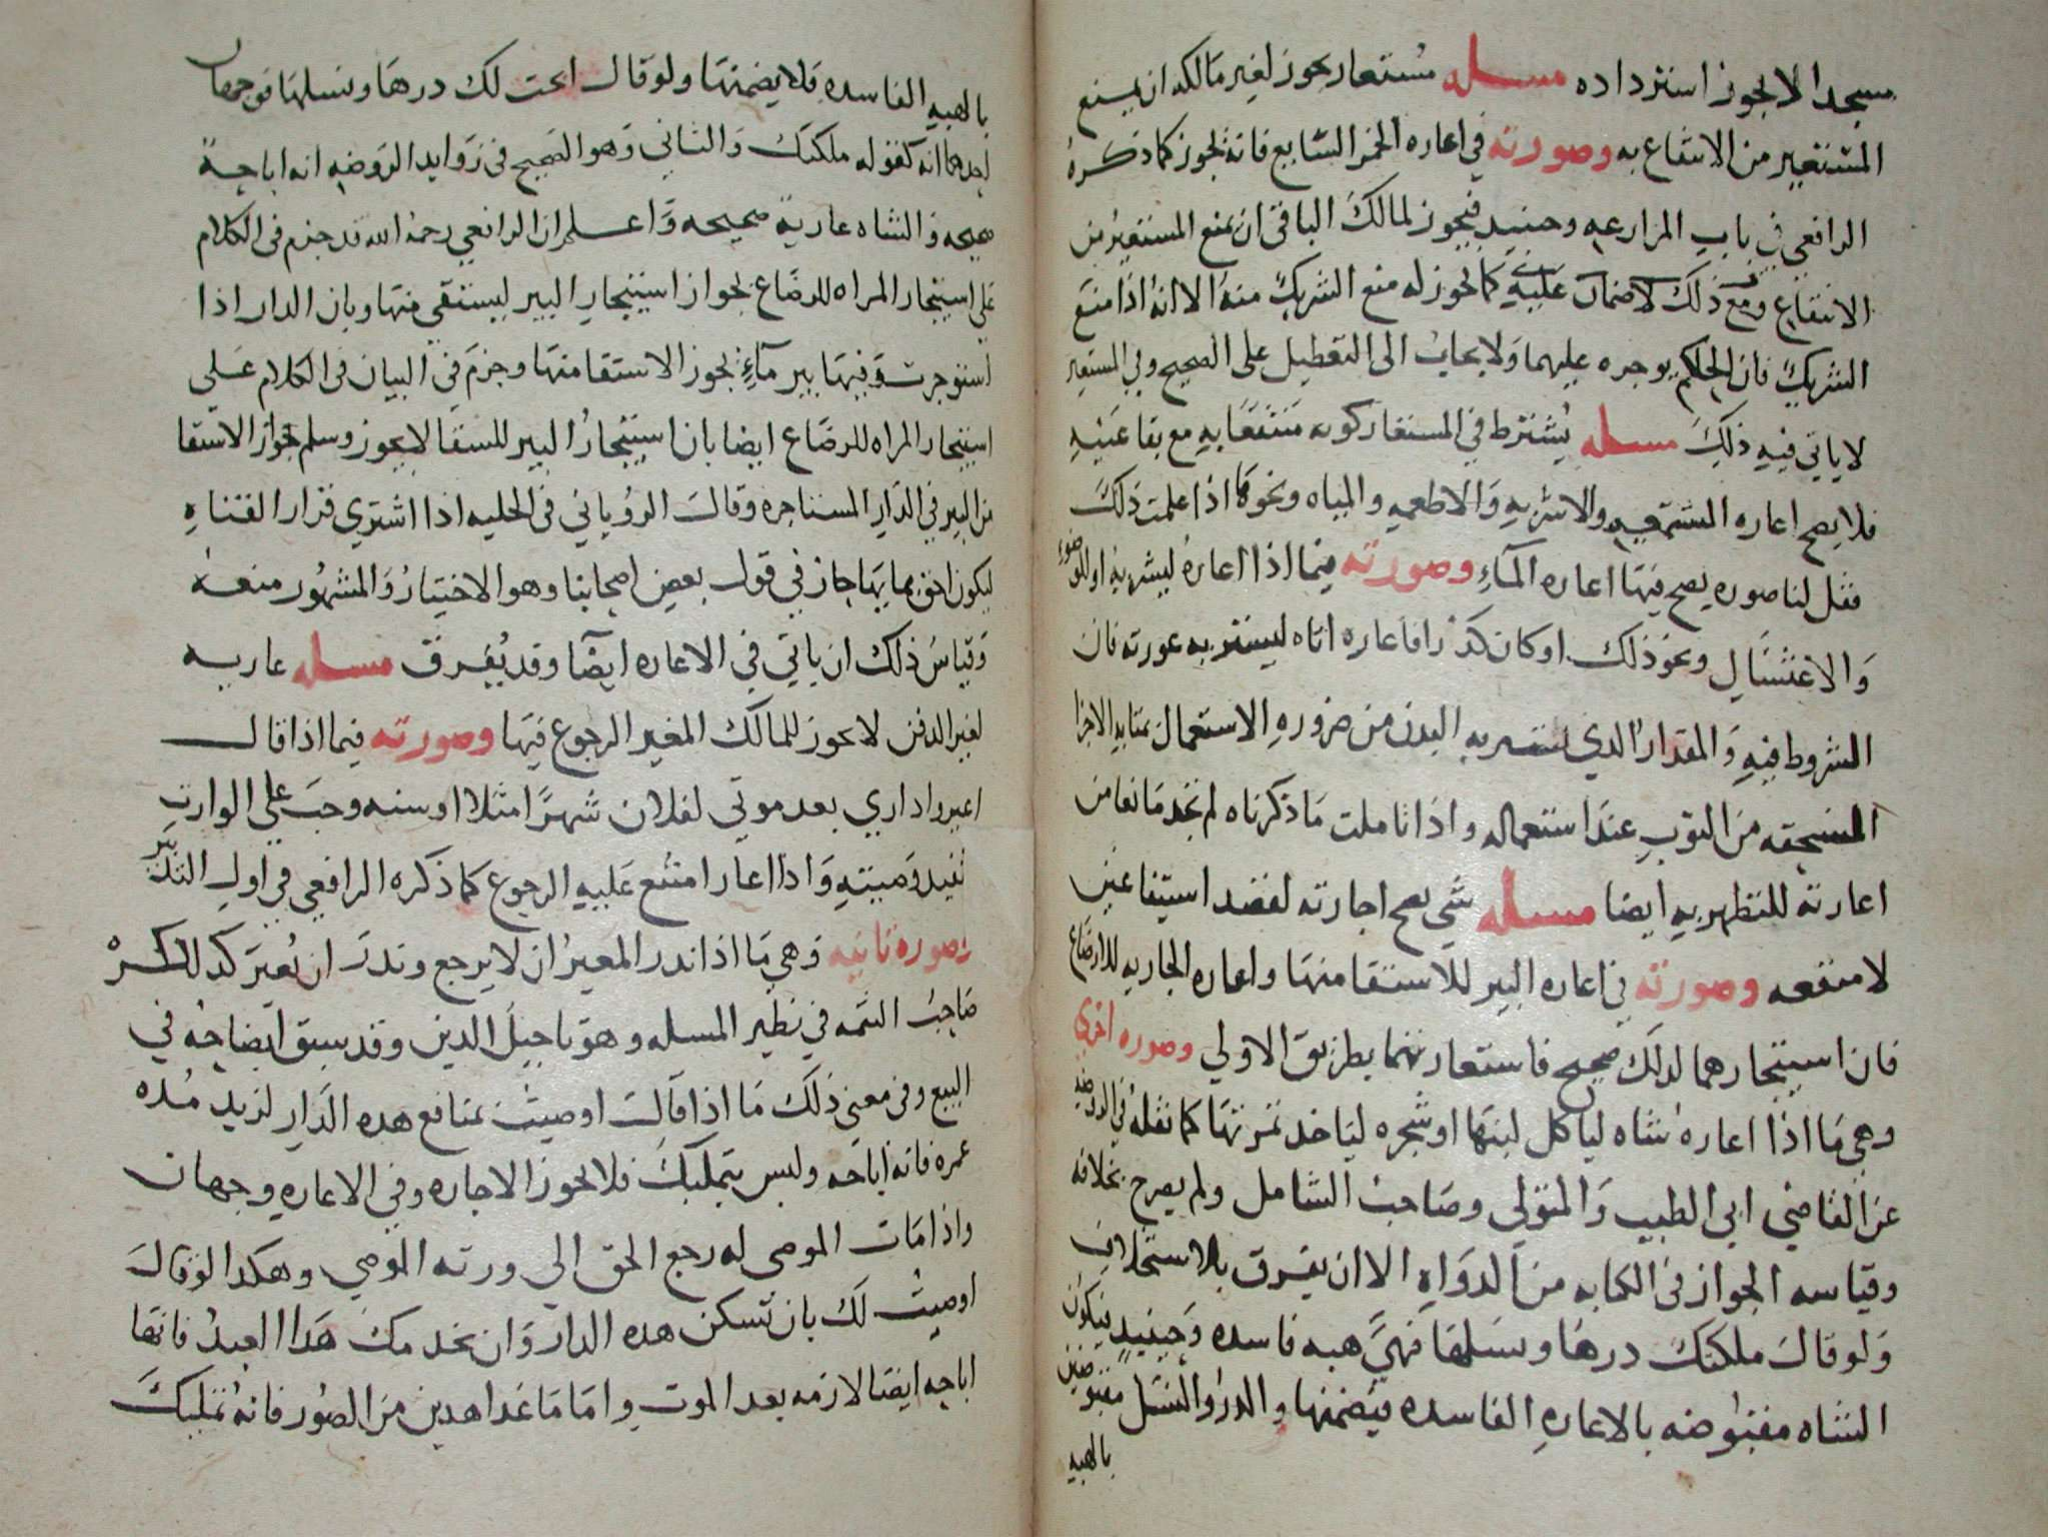 مسجدا لا يجوز استرداده مسله مستعار يجوز لغير مالكه ان يمنع
المستعير من الانتفاع به وصورته في اعاره الجزء الشايع فانه يجوز كما ذكره
الرافعي في باب المزارعه وحينيد فيجوز لمالك الباقي ان يمنع المستعير من
الانتفاع ومع ذلك لا ضمان عليه كما يجوز له منع الشريك منه الا انه اذا منع
الشريك فان الحاكم يوجره عليهما ولا يجاب الى التعطيل على الصحيح وفي المستعير
لا ياتي فيه ذلك مسله يشترط في المستعار كونه منتفعا به مع بقا عينه
فلا يصح اعاره الشمعه والاشربه والاطعمه والمياه ونحوها اذا علمت ذلك
فقل لنا صوره يصح فيها اعاره المآء وصورته فيما اذا اعاره ليشربه او للوضوء
والاغتسال ونحو ذلك او كان كدرا فاعاره اياه ليستتر به عورته فان
الشروط فيه والمقدار الذي يستتر به البدن من ضروره الاستعمال بمثابه الاجزا
المنسحقه من الثوب عند استعماله واذا تاملت ما ذكرناه لم تجد مانعا من
اعارته للتطهر به ايضا مسله شي يصح اجارته لقصد استيفا عين
لا منفعه وصورته في اعاره البير للاستقا منها واعاره الجاريه للارضاع
فان استيجارهما لذلك صحيح فاستعارتهما بطريق الاولي وصوره اخري
وهي ما اذا اعاره شاه لياكل لبنها او شجره لياخذ ثمرتها كما نقله في الروضه
عن القاضي ابي الطيب والمتولي وصاحب الشامل ولم يصرح بخلافه
وقياسه الجواز في الكتابه من الدواه الا ان يفرق بالاستخلاف
ولو قال ملكتك درها ونسلها فهي هبه فاسده وحينيد فيكون
الشاه مقبوضه بالاعاره الفاسده فيضمنها والدر والنسل مقبوضين
بالهبه
بالهبه الفاسده فلا يضمنها ولو قال ابحت لك درها ونسلها فوجهان
احدهما انه كقوله ملكتك والثاني وهو الصحيح في زوايد الروضه انه اباحة
صحيحه والشاه عارية صحيحه واعلم ان الرافعي رحمه الله قد جزم في الكلام
على استيجار المراه للرضاع بجواز استيجار البير ليستقي منها وبان الدار اذا
استوجرت وفيها بير مآء يجوز الاستقا منها وجزم في البيان في الكلام على
استيجار المراه للرضاع ايضا بان استيجار البير للسقا لا يجوز وسلم جواز الاستقا
من البير في الدار المستاجره وقال الروياني في الحليه اذا اشتري قرار القناه
ليكون احق بمايها جاز في قول بعض اصحابنا وهو الاختيار والمشهور منعه
وقياس ذلك ان ياتي في الاعاره ايضا وقد يفرق مسله عاريه
لغير الدفن لا يجوز للمالك المعير الرجوع فيها وصورته فيما اذا قال
اعيروا داري بعد موتي لفلان شهرا مثلا او سنه وجب على الوارث
تنفيد وصيته واذا اعار امتنع عليه الرجوع كما ذكره الرافعي في اول التدبير
وصوره ثانيه وهي ما اذا نذر المعير ان لا يرجع ونذر ان يعير كذلك ذكره
صاحب التتمه في نظير المسله وهو تاجيل الدين وقد سبق ايضاحه في
البيع وفي معنى ذلك ما اذا قال اوصيت بمنافع هذه الدار لزيد مده
عمره فانه اباحه وليس بتمليك فلا يجوز الاجاره وفي الاعاره وجهان
واذا مات الموصى له رجع الحق الى ورثه الموصي وهكذا لو قال
اوصيت لك بان تسكن هذه الدار وان يخدمك هذا العبد فانها
اباحه ايضا لازمه بعد الموت واما ما عدا هذين من الصور فانه تمليك